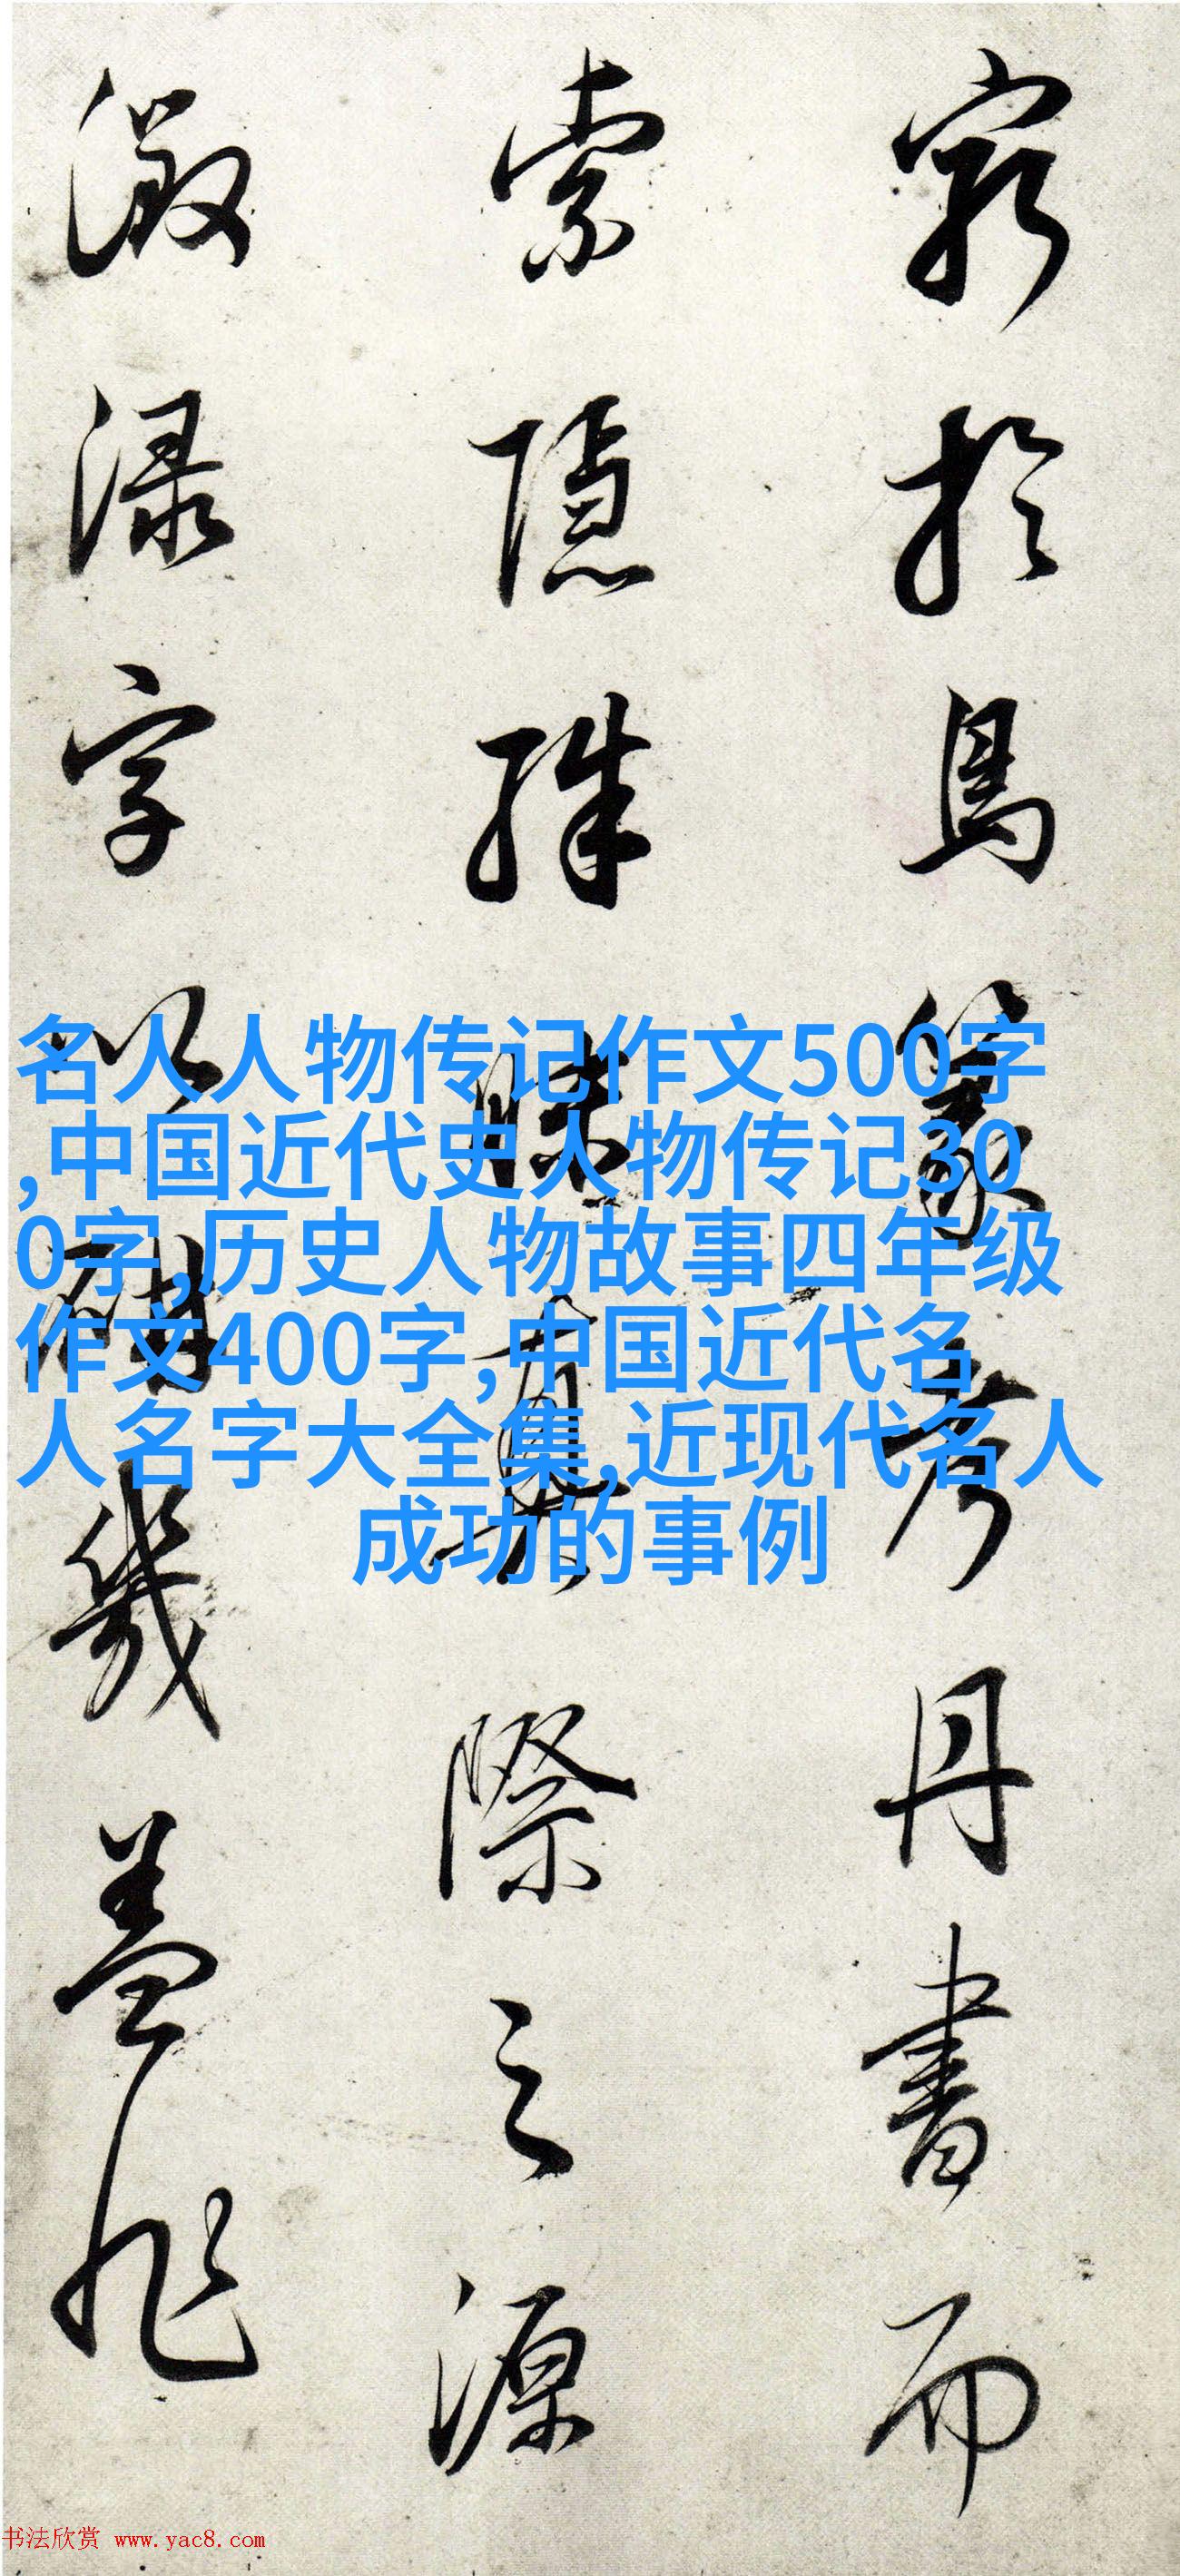 窮於鳥篆考丹書而
索隱殊昧真際之源
澂渌字以研幾盖非
名人人物传记作文500字
,中国近代史人物传记30
0字,历史人物故事四年级
作文400字,中国近代名
人名字大全集,近现代名人
成功的事例
书法欣赏 www.yac8.com